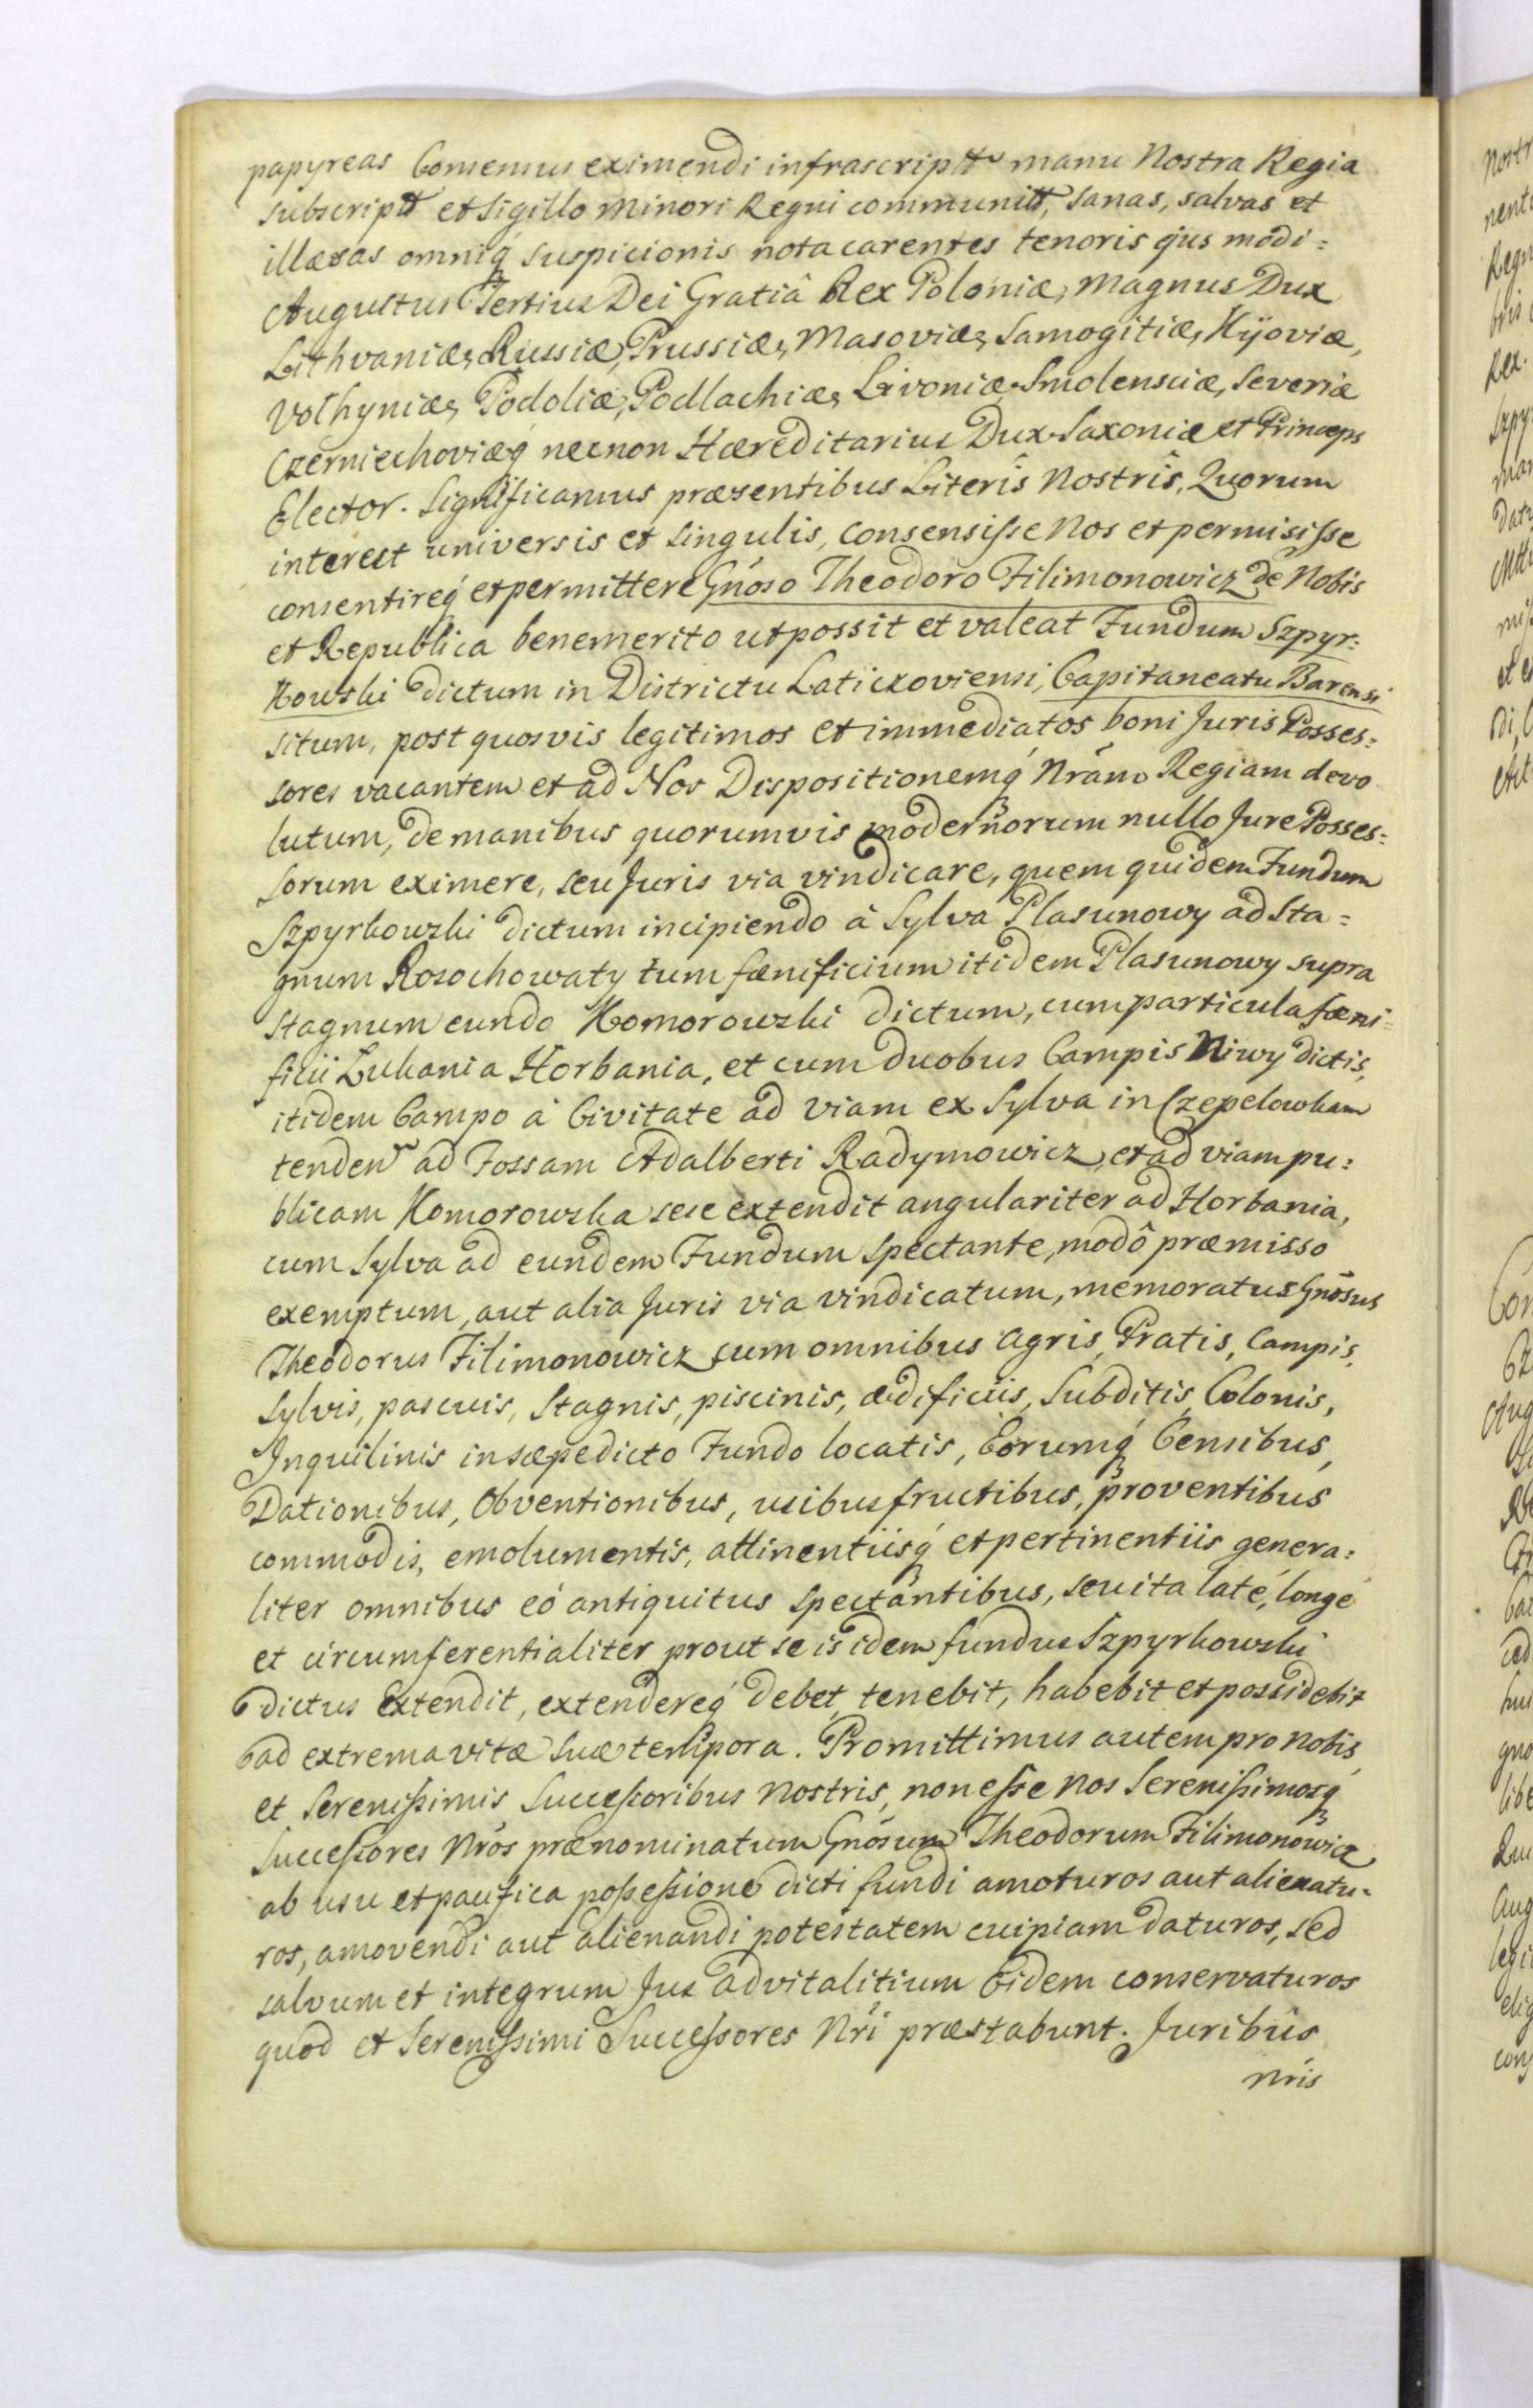 papyreas Consensus eximendi infrascriptt manu Nostra Regia
subscriptt et Sigillo Minori Regni communitt, Sanas, salvas et
illæsas omniq́ suspicionis nota carentes tenoris ejus modi =
Augustus Tertius Dei Gratiâ Rex Poloniæ, Magnus Dux
Lithvaniæ, Russiæ, Prussiæ, Masoviæ, Samogitiæ, Kijoviæ,
Volhyniæ, Podoliæ, Podlachiæ, Livoniæ, Smolensciæ, Severiæ
Czerniechoviæq́ necnon Hæreditarius Dux Saxoniæ et Princeps
Elector. Significamus præsentibus Literis Nostris, Quorum
interest universis et singulis, consensisse Nos et permisisse
consentireq́ et permittere Gnõso Theodoro Filimonowicz de Nobis
et Republica benemerito ut possit et valeat Fundum Szpyr=
kowski dictum in Districtu Laticzoviensi, Capitaneatu Barensi
situm, post quosvis legitimos et immediatos boni Juris Posses=
sores vacantem et ad Nos Dispositionemq́ Nrãm Regiam devo
lutum, de manibus quorumvis modernorum nullo Jure Posses=
sorum eximere, seu Juris via vindicare, quem quidem Fundum
Szpyrkowski dictum incipiendo à Sylva Plasunowy ad Sta =
gnum Rosochowaty tum fœnificium itidem Plasunowy supra
stagnum eundo Komorowski dictum, cum particula fœni=
ficii Lukania Horbania, et cum duobus Campis Niwy dictis,
itidem Campo à Civitate ad viam ex Sylva in Czepelowkam
tenden ad Fossam Adalberti Radymowicz, et ad viam pu=
blicam Komorowska sese extendit angulariter ad Horbania,
cum Sylva ad eundem Fundum spectante, modô præmisso
exemptum, aut alia Juris via vindicatum, memoratus Gnõsus
Theodorus Filimonowicz cum omnibus agris, Pratis, Campis,
Sylvis, pascuis, Stagnis, piscinis, ædificiis, Subditis, Colonis,
Inquilinis in sæpedicto Fundo locatis, Eorumq́ Censibus,
Dationibus, Obventionibus, usibusfructibus, proventibus
commodis, emolumentis, attinentiisq́ et pertinentiis genera=
liter omnibus eó antiquitus spectantibus, seu ita laté, longé
et circumferentialiter prout se is idem fundus Szpyrkowski
dictus extendit, extendereq́ debet, tenebit, habebit et possidebit
ad extrema vitæ suæ tempora. Promittimus autem pro Nobis,
et Serenissimis Successoribus Nostris, non esse Nos Serenissimosq́
Successores Nrõs prænominatum Gnõsum Theodorum Filimonowicz
ab usu et pacifica possessione dicti fundi amoturos aut alienatu=
ros, amovendi aut alienandi potestatem cuipiam daturos, sed
salvum et integrum Jus advitalitium Eidem conservaturos
quod et Serenissimi Successores Nrĩ præstabunt. Juribus
Nrĩs